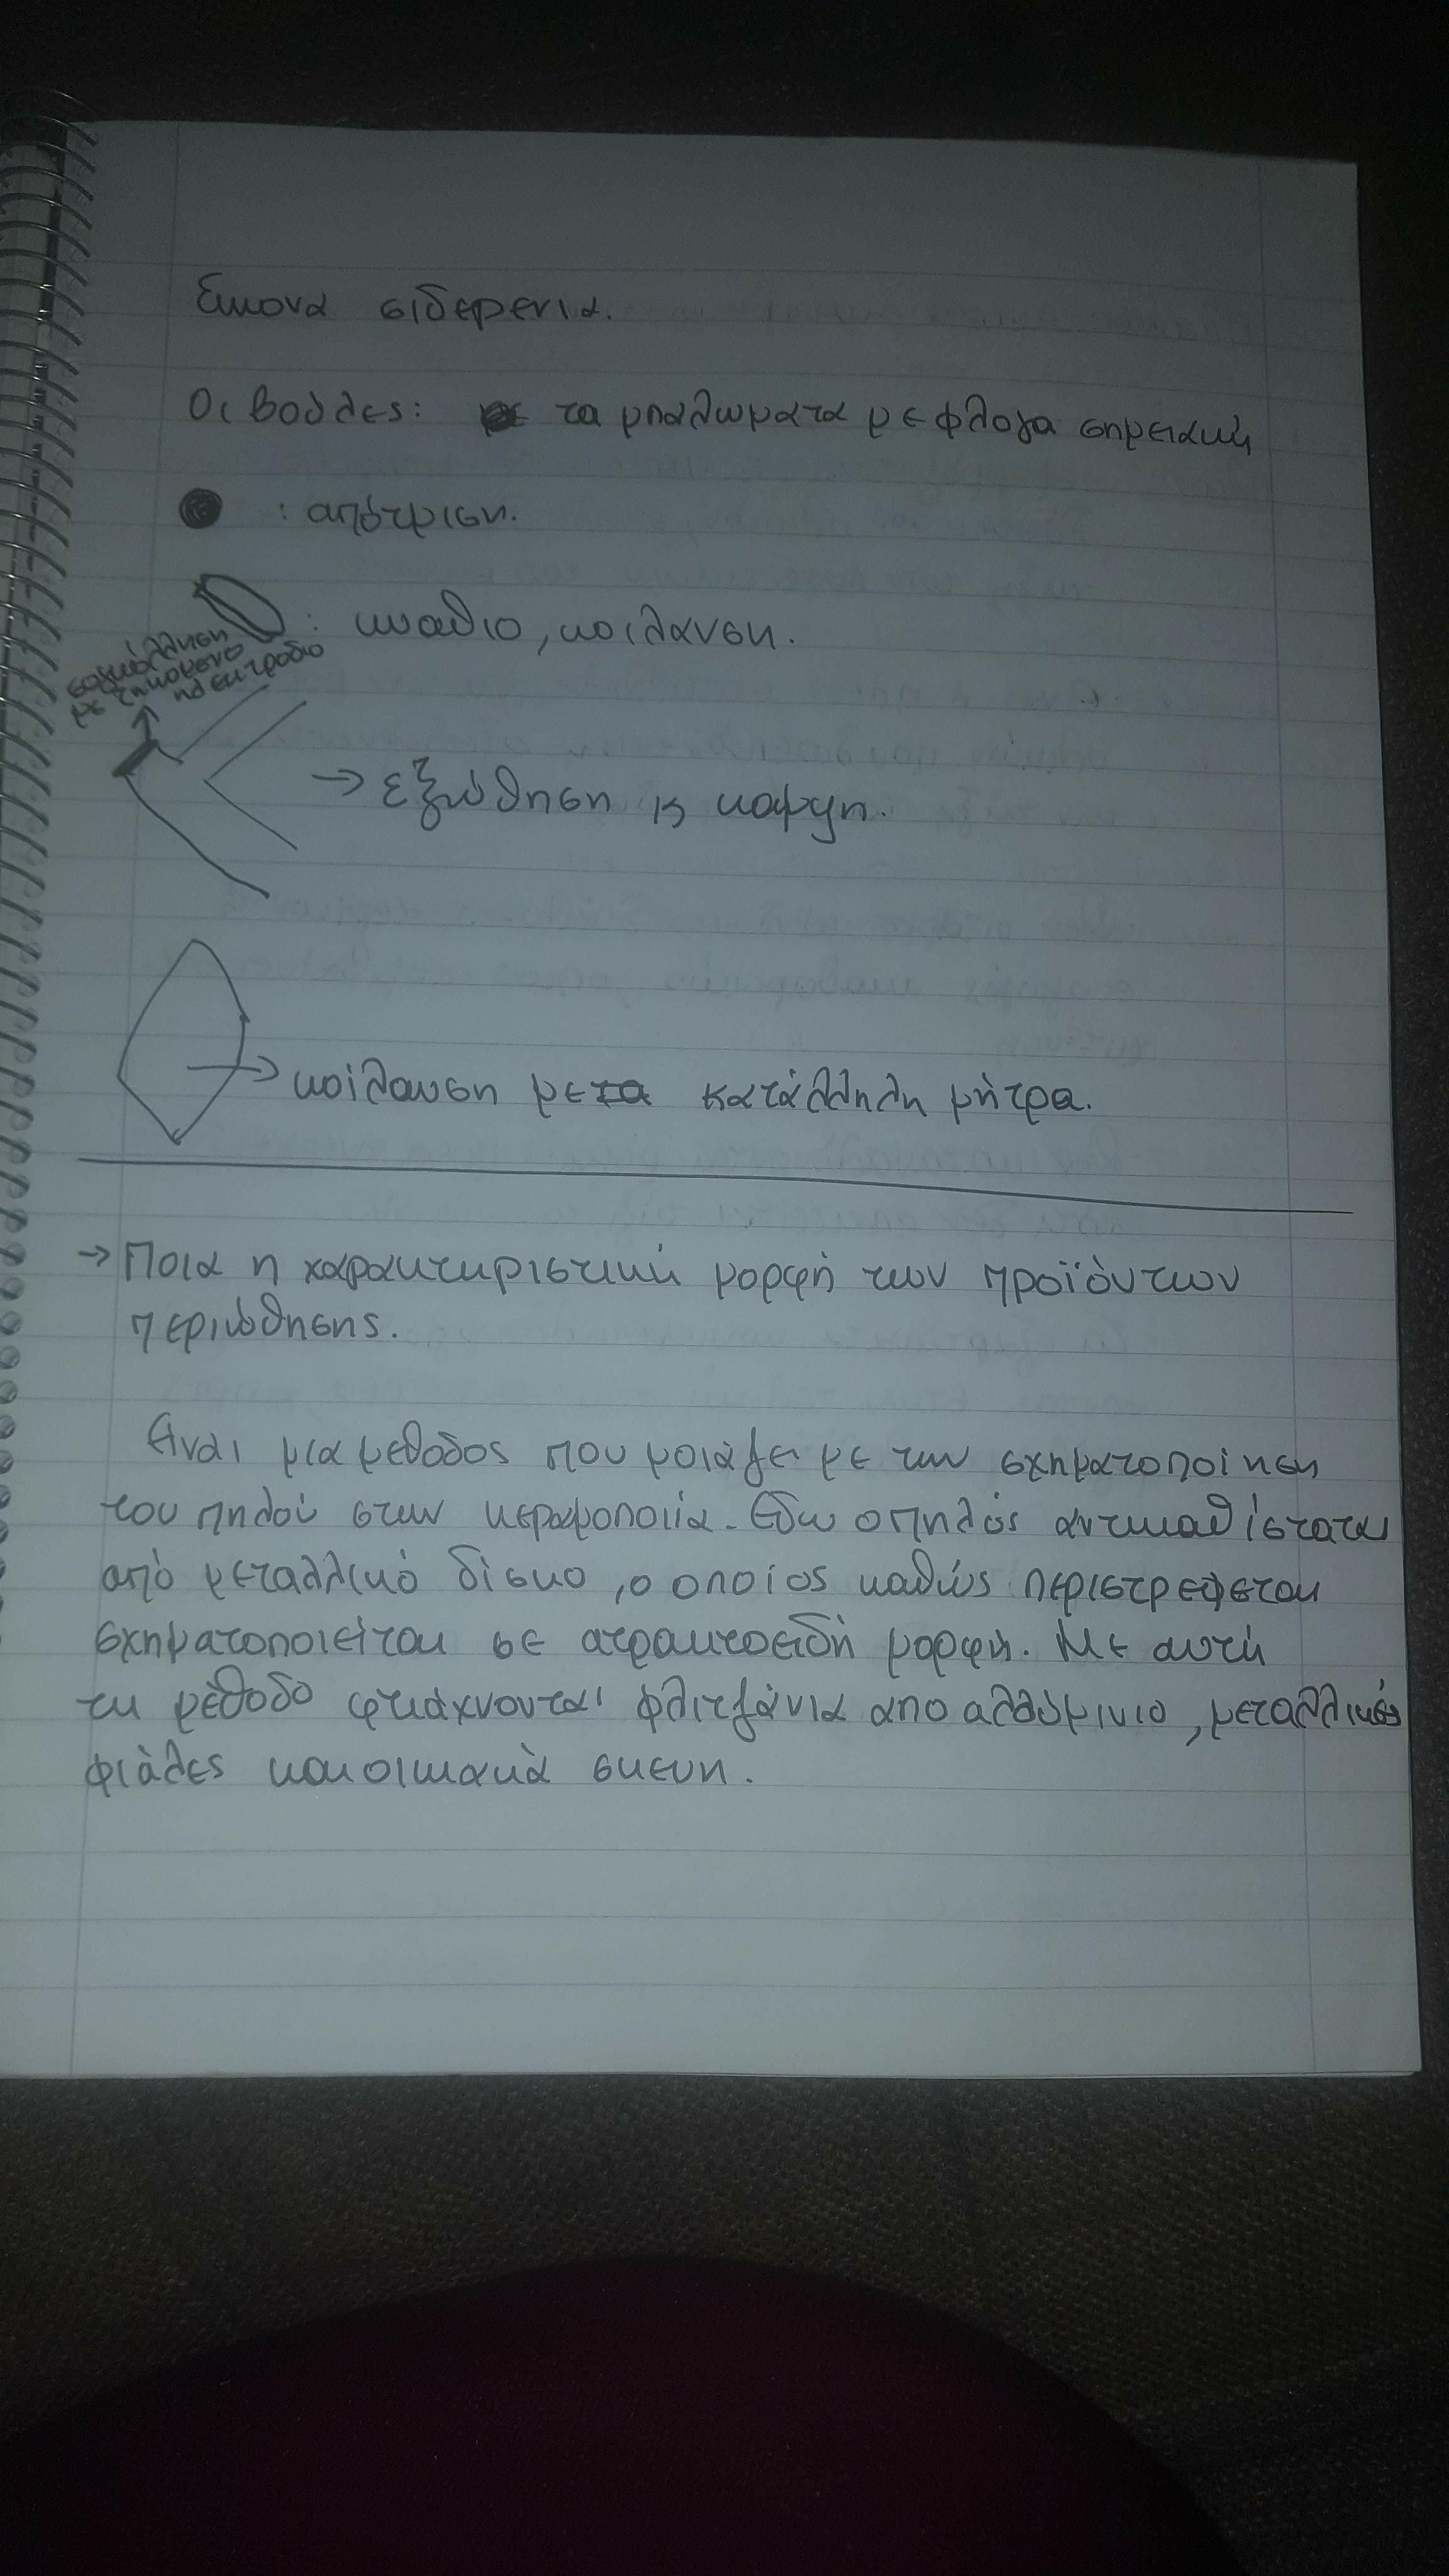 Εικονα σιδερενια.
Οι βούλες: τα μπαλωματα με φλογα σημειακή
: απότμιση.
: κυαθιο, κοιλανση.
συγκόλληση
με τηκομενο
ηλεκτροδιο
→ εξώθηση κ καμψη.
→ κοίλανση με κατάλληλη μήτρα.
→ Ποια η χαρακτηριστική μορφή των προϊόντων
περιώθησης.
Ειναι μια μεθοδος που μοιάζει με την σχηματοποίηση
του πηλού στην κεραμοποιία. Εδω ο πηλός αντικαθίσταται
από μεταλλικό δίσκο, ο οποίος καθώς περιστρεφεται
σχηματοποιείται σε ατρακτοειδή μορφή. Με αυτή
τη μέθοδο φτιάχνονται φλιτζάνια απο αλλύμινιο, μεταλλικές
φιάλες και οικιακά σκευη.